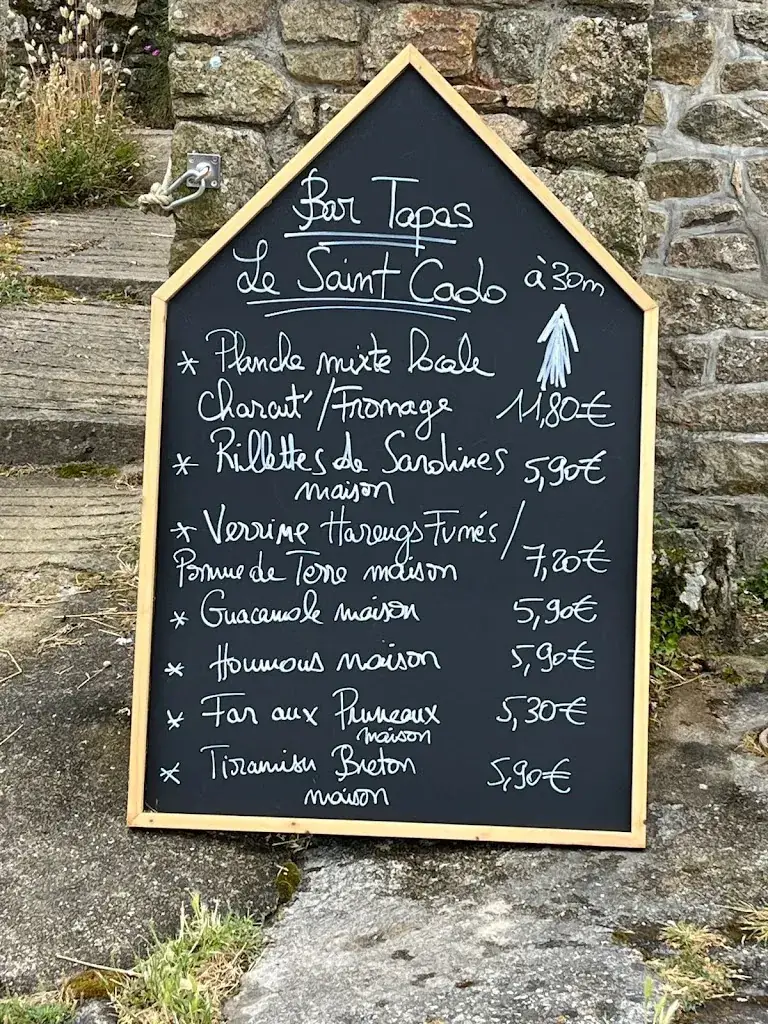 Bar Tapas
Le Saint Cado à 30m
* Planche mixte locale
Charcut'/Fromage 11,80€
* Rillettes de Sardines 5,90€
maison
* Verrine Harengs Fumés/
Pomme de Terre maison 7,20€
* Guacamole maison 5,90€
* Houmous maison 5,90€
* Far aux Pruneaux 5,30€
maison
* Tiramisu Breton 5,90€
maison